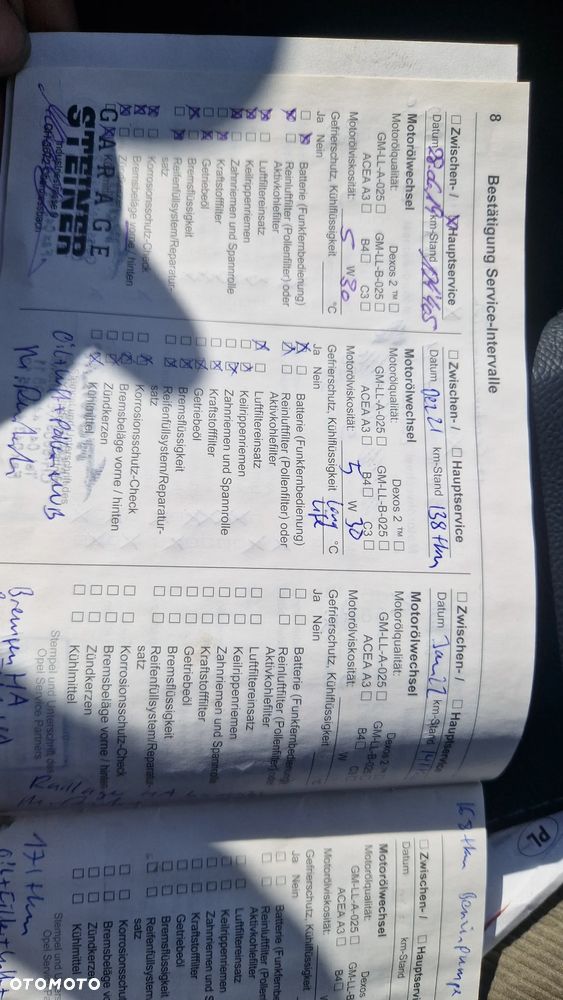 8
Bestätigung Service-Intervalle
Zwischen- / Hauptservice
Datum km-Stand
Motorölwechsel
Motorölqualität: Dexos 2 ™
GM-LL-A-025 GM-LL-B-025
ACEA A3 B4 C3
Motorölviskosität: 5 W 30
Gefrierschutz, Kühlflüssigkeit °C
Ja Nein
Batterie (Funkfernbedienung)
Reinluftfilter (Pollenfilter) oder
Aktivkohlefilter
Luftfiltereinsatz
Keilrippenriemen
Zahnriemen und Spannrolle
Kraftstofffilter
Getriebeöl
Bremsflüssigkeit
Reifenfüllsystem/Reparatur-
satz
Korrosionsschutz-Check
Bremsbeläge vorne / hinten
GARAGE
STEINER
Zwischen- / Hauptservice
Datum 02.21 km-Stand 138 tkm
Motorölwechsel
Motorölqualität: Dexos 2 ™
GM-LL-A-025 GM-LL-B-025
ACEA A3 B4 C3
Motorölviskosität: 5 W 30
Gefrierschutz, Kühlflüssigkeit long life °C
Ja Nein
Batterie (Funkfernbedienung)
Reinluftfilter (Pollenfilter) oder
Aktivkohlefilter
Luftfiltereinsatz
Keilrippenriemen
Zahnriemen und Spannrolle
Kraftstofffilter
Getriebeöl
Bremsflüssigkeit
Reifenfüllsystem/Reparatur-
satz
Korrosionsschutz-Check
Bremsbeläge vorne / hinten
Zündkerzen
Kühlmittel
Zwischen- / Hauptservice
Datum km-Stand
Motorölwechsel
Motorölqualität: Dexos 2
GM-LL-A-025 GM-LL-B-025
ACEA A3 B4
Motorölviskosität: W
Gefrierschutz, Kühlflüssigkeit
Ja Nein
Batterie (Funkfernbedienung)
Reinluftfilter (Pollenfilter) oder
Aktivkohlefilter
Luftfiltereinsatz
Keilrippenriemen
Zahnriemen und Spannrolle
Kraftstofffilter
Getriebeöl
Bremsflüssigkeit
Reifenfüllsystem/Reparatur-
satz
Korrosionsschutz-Check
Bremsbeläge vorne / hinten
Zündkerzen
Kühlmittel
Stempel und Unterschrift des
Opel Service Partners
Bremsen HA
168 tkm
Zwischen- /
Datum km-Stand
Motorölwechsel
Motorölqualität: Dexos
GM-LL-A-025 GM-LL-B
ACEA A3 B4
Motorölviskosität:
Gefrierschutz, Kühlflüssigkeit
Ja Nein
Batterie (Funkfernb
Reinluftfilter (Pollenf
Aktivkohlefilter
Luftfiltereinsatz
Keilrippenriemen
Zahnriemen und Span
Kraftstofffilter
Getriebeöl
Bremsflüssigkeit
Reifenfüllsystem
satz
Korrosionsschutz
Bremsbeläge vo
Zündkerzen
Kühlmittel
Stempel und Unte
Opel Servi
171 tkm
PL
OTOMOTO